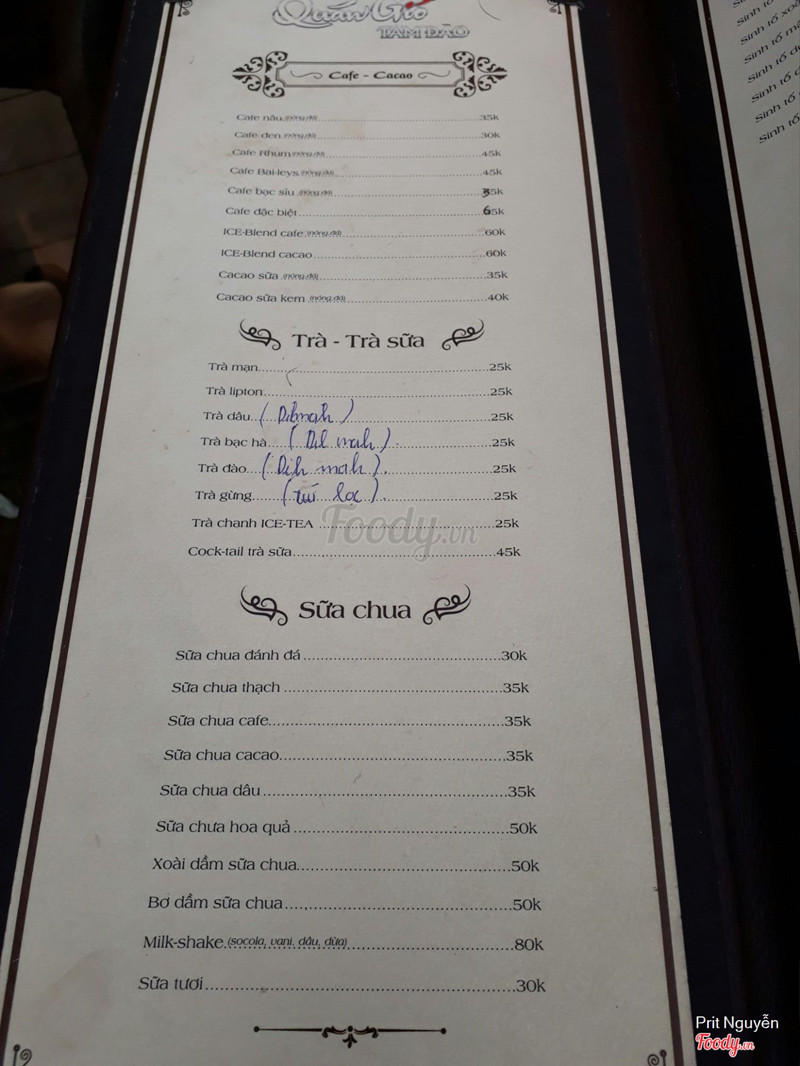 Quán Gió
TAM ĐẢO
Cafe - Cacao
Cafe nâu (nóng,đá) 35k
Cafe đen (nóng,đá) 30k
Cafe Rhum (nóng,đá) 45k
Cafe Bai-leys (nóng,đá) 45k
Cafe bạc sỉu (nóng,đá) 35k
Cafe đặc biệt 65k
ICE-Blend cafe (nóng,đá) 60k
ICE-Blend cacao 60k
Cacao sữa (nóng,đá) 35k
Cacao sữa kem (nóng,đá) 40k
Trà - Trà sữa
Trà mạn 25k
Trà lipton 25k
Trà dâu (Dilmah) 25k
Trà bạc hà (Dil mah) 25k
Trà đào (Dih mah) 25k
Trà gừng (túi lọc) 25k
Trà chanh ICE-TEA 25k
Cock-tail trà sữa 45k
Sữa chua
Sữa chua đánh đá 30k
Sữa chua thạch 35k
Sữa chua cafe 35k
Sữa chua cacao 35k
Sữa chua dâu 35k
Sữa chưa hoa quả 50k
Xoài dầm sữa chua 50k
Bơ dầm sữa chua 50k
Milk-shake (socola, vani, dâu, dừa) 80k
Sữa tươi 30k
Sinh tố
Sinh tố xoà
Sinh tố
Sinh tố
Sinh tố
Sinh tố
Sinh tố
Foody.vn
Prit Nguyễn
Foody.vn